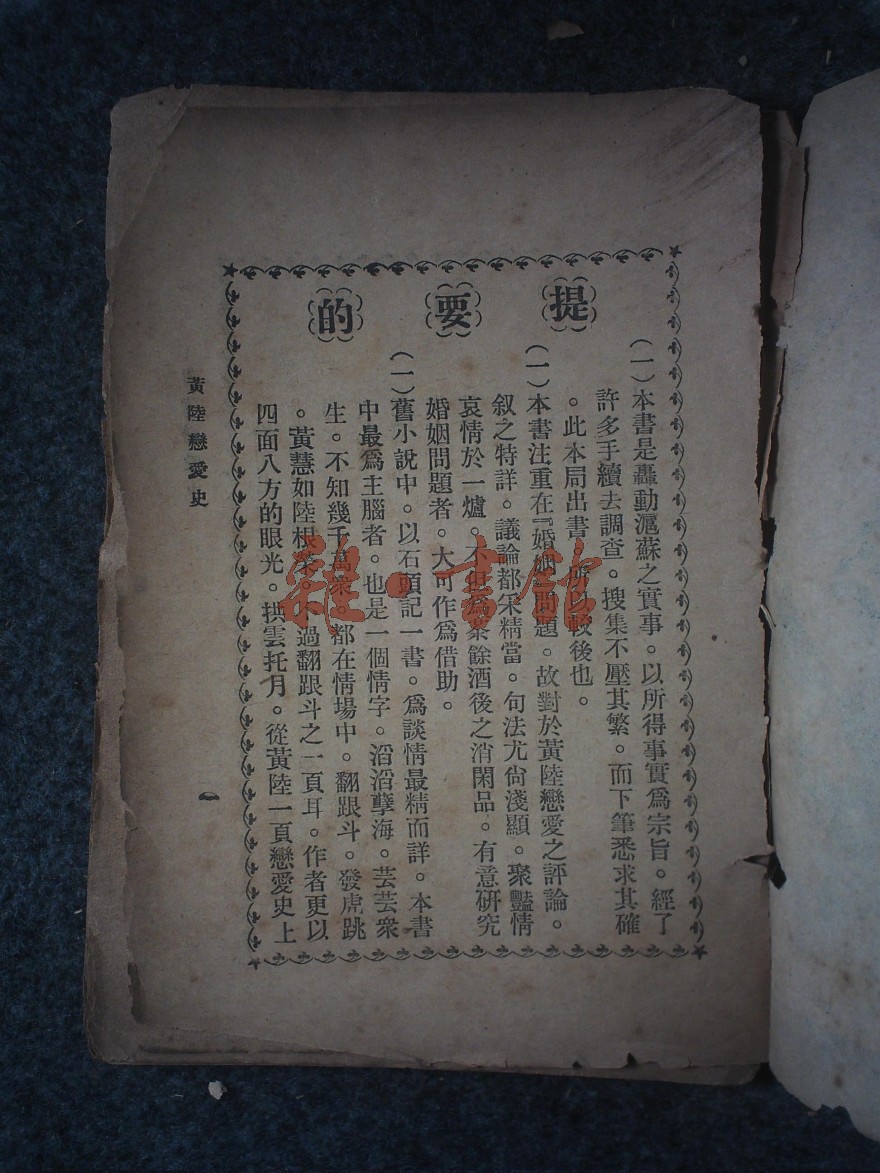 提要的
（一）本書是轟動滬蘇之實事。以所得事實爲宗旨。經了
許多手續去調查。搜集不壓其繁。而下筆悉求其確
。此本局出書。所以較後也。
（一）本書注重在『婚姻』問題。故對於黃陸戀愛之評論。
叙之特詳。議論都采精當。句法尤尙淺顯。聚豔情
哀情於一爐。不但爲茶餘酒後之消閑品。有意研究
婚姻問題者。大可作爲借助。
（一）舊小說中。以石頭記一書。爲談情最精而詳。本書
中最爲主腦者。也是一個情字。滔滔孽海。芸芸衆
生。不知幾千萬衆。都在情場中。翻跟斗。發虎跳
。黃慧如陸根榮。過翻跟斗之一頁耳。作者更以
四面八方的眼光。拱雲托月。從黃陸一頁戀愛史上
黃陸戀愛史
一
雜·書館